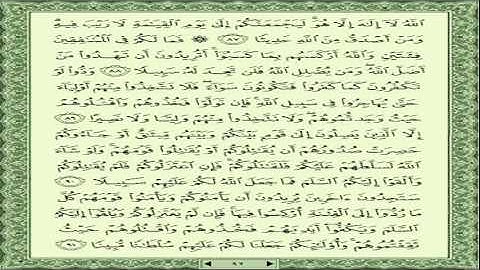 اللَّهُ لَا إِلَٰهَ إِلَّا هُوَ لَيَجْمَعَنَّكُمْ إِلَىٰ يَوْمِ الْقِيَامَةِ لَا رَيْبَ فِيهِ
وَمَنْ أَصْدَقُ مِنَ اللَّهِ حَدِيثًا ۝٨٧ ۞ فَمَا لَكُمْ فِي الْمُنَافِقِينَ
فِئَتَيْنِ وَاللَّهُ أَرْكَسَهُم بِمَا كَسَبُوا أَتُرِيدُونَ أَن تَهْدُوا مَنْ
أَضَلَّ اللَّهُ وَمَن يُضْلِلِ اللَّهُ فَلَن تَجِدَ لَهُ سَبِيلًا ۝٨٨ وَدُّوا لَوْ
تَكْفُرُونَ كَمَا كَفَرُوا فَتَكُونُونَ سَوَاءً فَلَا تَتَّخِذُوا مِنْهُمْ أَوْلِيَاءَ
حَتَّىٰ يُهَاجِرُوا فِي سَبِيلِ اللَّهِ فَإِن تَوَلَّوْا فَخُذُوهُمْ وَاقْتُلُوهُمْ
حَيْثُ وَجَدتُّمُوهُمْ وَلَا تَتَّخِذُوا مِنْهُمْ وَلِيًّا وَلَا نَصِيرًا ۝٨٩
إِلَّا الَّذِينَ يَصِلُونَ إِلَىٰ قَوْمٍ بَيْنَكُمْ وَبَيْنَهُم مِّيثَاقٌ أَوْ جَاءُوكُمْ
حَصِرَتْ صُدُورُهُمْ أَن يُقَاتِلُوكُمْ أَوْ يُقَاتِلُوا قَوْمَهُمْ وَلَوْ شَاءَ
اللَّهُ لَسَلَّطَهُمْ عَلَيْكُمْ فَلَقَاتَلُوكُمْ فَإِنِ اعْتَزَلُوكُمْ فَلَمْ يُقَاتِلُوكُمْ
وَأَلْقَوْا إِلَيْكُمُ السَّلَمَ فَمَا جَعَلَ اللَّهُ لَكُمْ عَلَيْهِمْ سَبِيلًا ۝٩٠
سَتَجِدُونَ آخَرِينَ يُرِيدُونَ أَن يَأْمَنُوكُمْ وَيَأْمَنُوا قَوْمَهُمْ كُلَّ
مَا رُدُّوا إِلَى الْفِتْنَةِ أُرْكِسُوا فِيهَا فَإِن لَّمْ يَعْتَزِلُوكُمْ وَيُلْقُوا إِلَيْكُمُ
السَّلَمَ وَيَكُفُّوا أَيْدِيَهُمْ فَخُذُوهُمْ وَاقْتُلُوهُمْ حَيْثُ
ثَقِفْتُمُوهُمْ وَأُولَٰئِكُمْ جَعَلْنَا لَكُمْ عَلَيْهِمْ سُلْطَانًا مُّبِينًا ۝٩١
٩٢